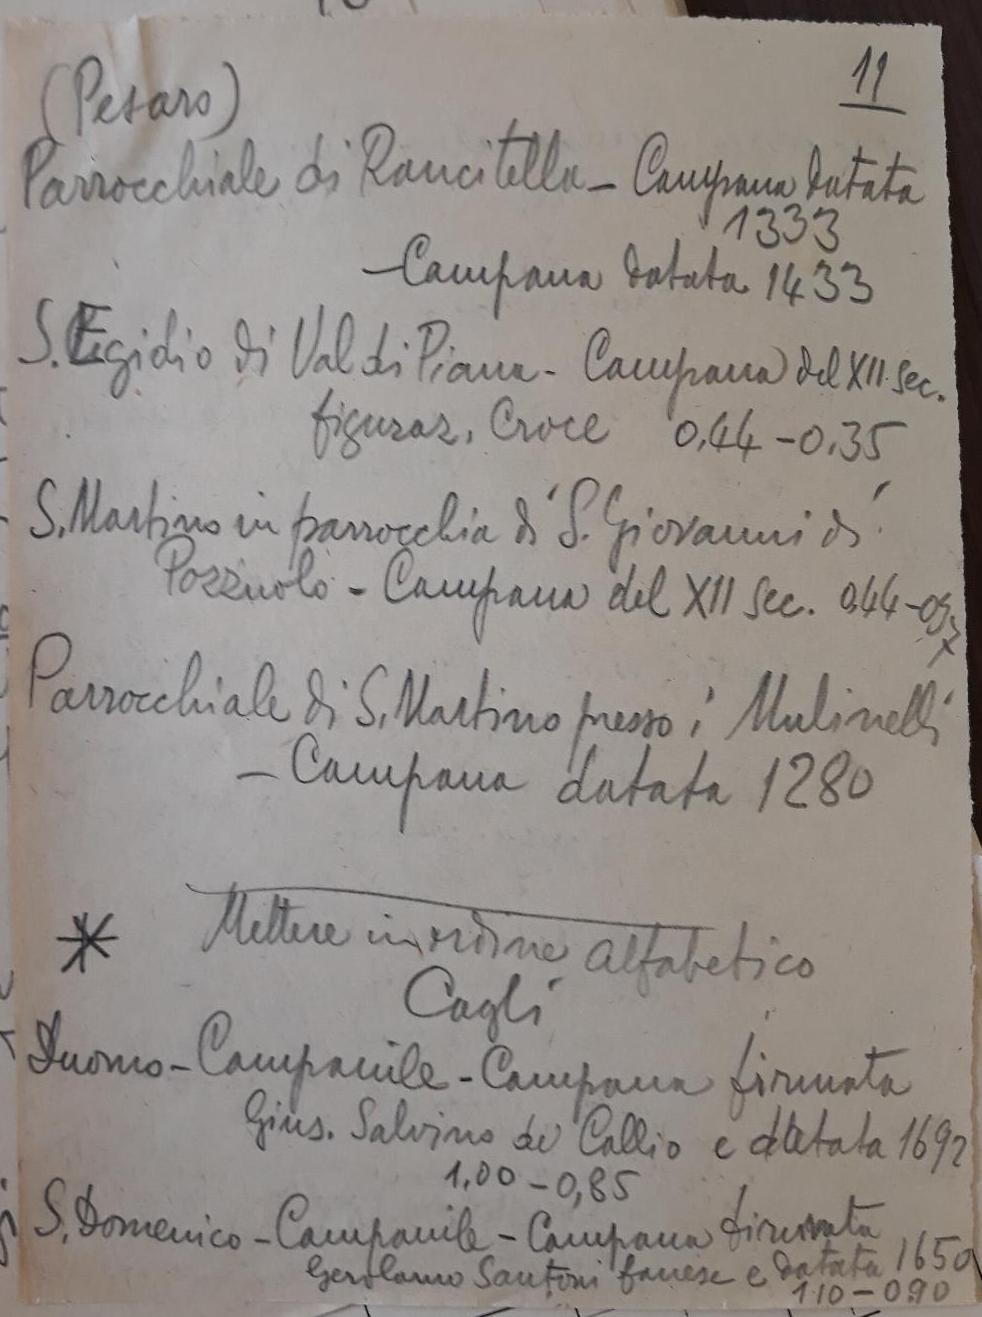 11
(Pesaro)
Parrocchiale di Rancitella - Campana datata
1333
- Campana datata 1433
S. Egidio di Val di Piana - Campana del XII sec.
figuraz. Croce 0,44 - 0,35
S. Martino in parrocchia di S. Giovanni di
Pozzuolo - Campana del XII sec. 0,44 - 0,37
Parrocchiale di S. Martino presso i Mulinelli
- Campana datata 1280
* Mettere in ordine alfabetico
Cagli
Duomo - Campanile - Campana firmata
Gius. Salvino de Callio e datata 1692
1,00 - 0,85
S. Domenico - Campanile - Campana firmata
Gerolamo Santoni fanese e datata 1650
1 10 - 0 90